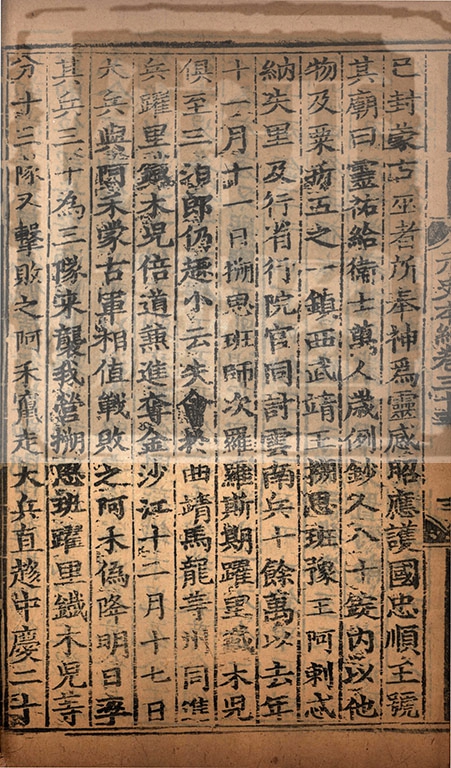 已封蒙古巫者所奉神爲靈感昭應護國忠順王號
其廟曰靈祐給衛士萬人歲例鈔人八十錠內以他
物及粟折五之一鎮西武靖王搠思班豫王阿剌忒
納失里及行省行院官同討雲南兵十餘萬以去年
十一月十一日搠思班師次羅羅斯期躍里鐵木兒
俱至三泊郎仍趣小云失會於曲靖馬龍等州同進
兵躍里鐵木兒倍道兼進奪金沙江十二月十七日
大兵與阿禾蒙古軍相值戰敗之阿禾偽降明日率
其兵三千為三隊來襲我營搠思班躍里鐵木兒等
分十三隊又擊敗之阿禾竄走大兵直趨中慶二十
元史本紀卷三十五